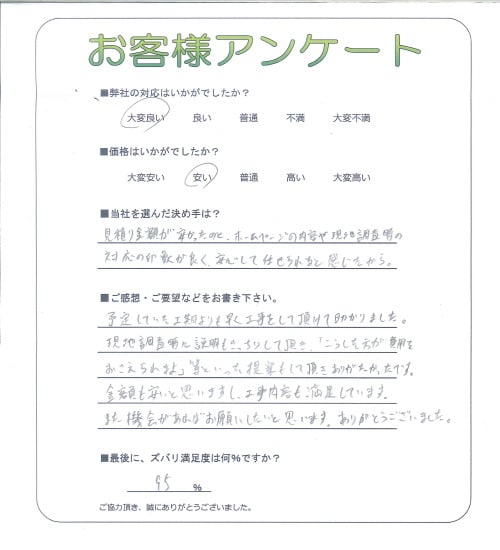 お客様アンケート
■弊社の対応はいかがでしたか？
大変良い 良い 普通 不満 大変不満
■価格はいかがでしたか？
大変安い 安い 普通 高い 大変高い
■当社を選んだ決め手は？
見積り金額が安かったのと、ホームページの内容や現地調査時の
対応の印象が良く、安心して任せられると感じたから。
■ご感想・ご要望などをお書き下さい。
予定していた工期よりも早く工事をして頂けて助かりました。
現地調査時に説明もきっちりして頂き、「こうした方が費用を
おさえられるよ」等といった提案もして頂きありがたかったです。
金額も安いと思いますし、工事内容も満足しています。
また機会があればお願いしたいと思います。ありがとうございました。
■最後に、ズバリ満足度は何%ですか？
95 %
ご協力頂き、誠にありがとうございました。